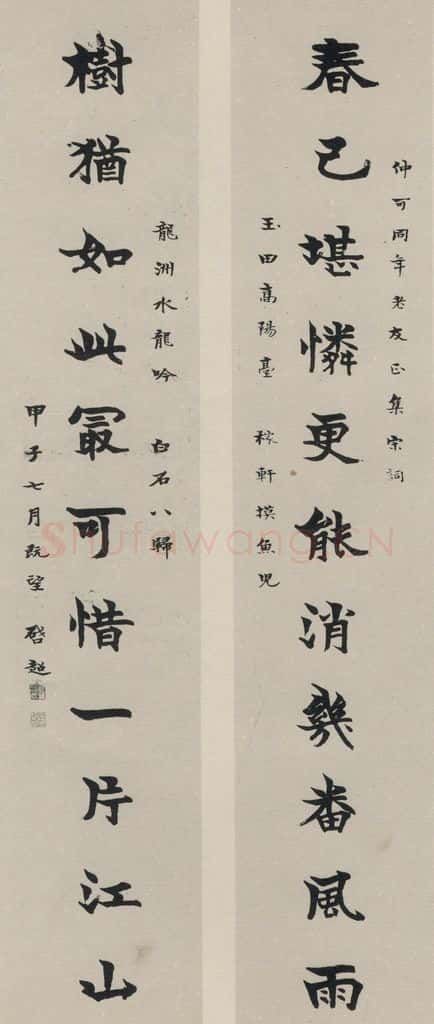 仲可同年老友正集宋詞
春已堪憐更能消幾番風雨
玉田高陽臺 稼軒摸魚兒
龍洲水龍吟 白石八歸
樹猶如此冣可惜一片江山
甲子七月既望 啓超
Shufawang.CN